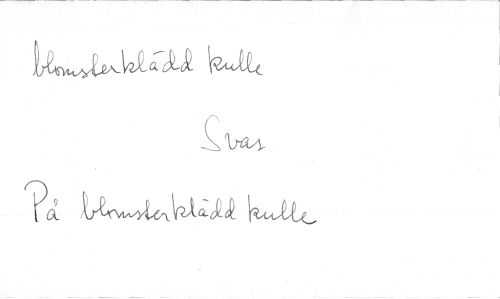 blomsterklädd kulle
Svar
På blomsterklädd kulle